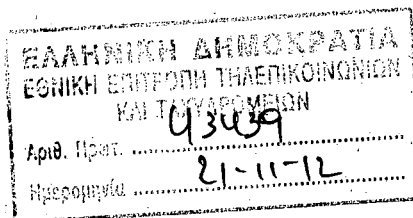 ΕΛΛΗΝΙΚΗ ΔΗΜΟΚΡΑΤΙΑ
ΕΘΝΙΚΗ ΕΠΙΤΡΟΠΗ ΤΗΛΕΠΙΚΟΙΝΩΝΙΩΝ
ΚΑΙ ΤΑΧΥΔΡΟΜΕΙΩΝ
Αριθ. Πρωτ. 43439
Ημερομηνία 21-11-12